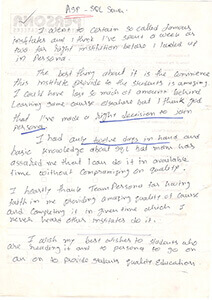 ASP - SQL Server
I went to certain so called famous
institutes and I think I've spent a week or
two for right institution before I landed up
in Persona.
The best thing about it is the commitment
this institute provide to the students is amazing
I could have lost so much of amount behind
learning same course elsewhere but I thank god
that I've made a right decision to join
Persona.
I had only twelve days in hand and
basic knowledge about SQL but mam has
assured me that I can do it in available
time without compromising on quality.
I heartly thank Team Persona for having
faith in me providing amazing quality of course
and completing it in given time which I
never heard other institutes do it.
I wish my best wishes to students who
are heading in and to persona to go on
and on to provide students quality education